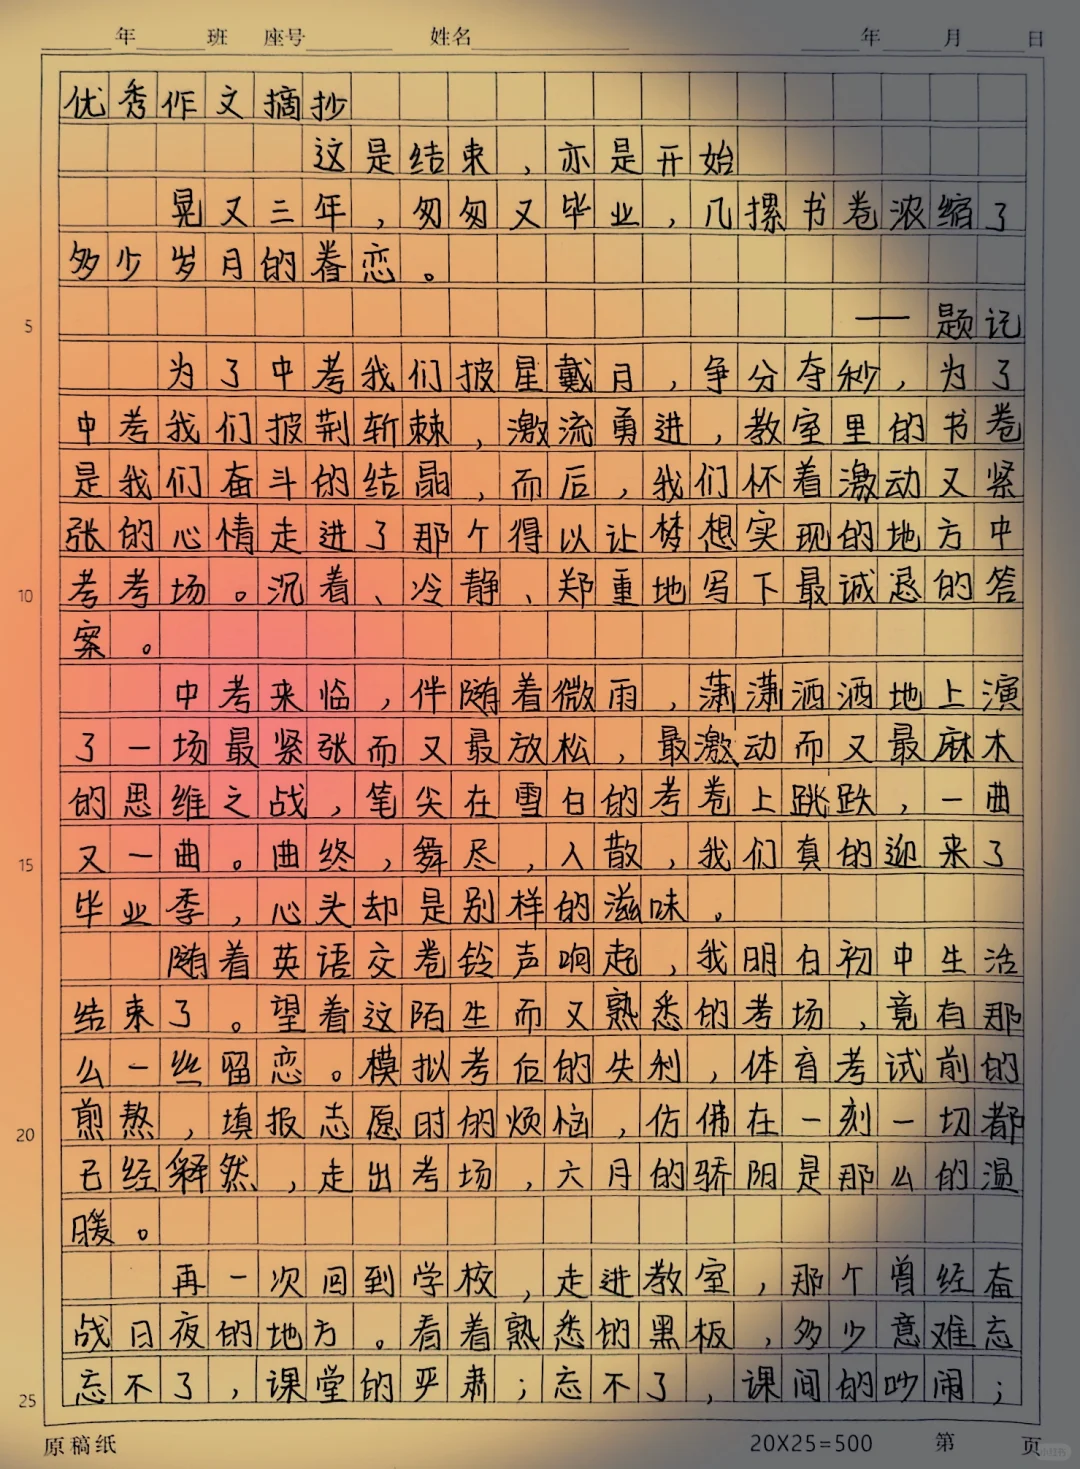 年 班 座号 姓名 年 月 日
优秀作文摘抄
这是结束，亦是开始
晃又三年，匆匆又毕业，几摞书卷浓缩了
多少岁月的眷恋。
5 ——题记
为了中考我们披星戴月，争分夺秒，为了
中考我们披荆斩棘，激流勇进，教室里的书卷
是我们奋斗的结晶，而后，我们怀着激动又紧
张的心情走进了那个得以让梦想实现的地方中
10 考考场。沉着、冷静、郑重地写下最诚恳的答
案。
中考来临，伴随着微雨，潇潇洒洒地上演
了一场最紧张而又最放松，最激动而又最麻木
的思维之战，笔尖在雪白的考卷上跳跌，一曲
15 又一曲。曲终，舞尽，人散，我们真的迎来了
毕业季，心头却是别样的滋味。
随着英语交卷铃声响起，我明白初中生活
结束了。望着这陌生而又熟悉的考场，竟有那
么一丝留恋。模拟考后的失利，体育考试前的
20 煎熬，填报志愿时的烦恼，仿佛在一刻一切都
已经释然，走出考场，六月的骄阳是那么的温
暖。
再一次回到学校，走进教室，那个曾经奋
战日夜的地方。看着熟悉的黑板，多少意难忘
25 忘不了，课堂的严肃；忘不了，课间的吵闹；
原稿纸 20X25=500 第 页
小红书